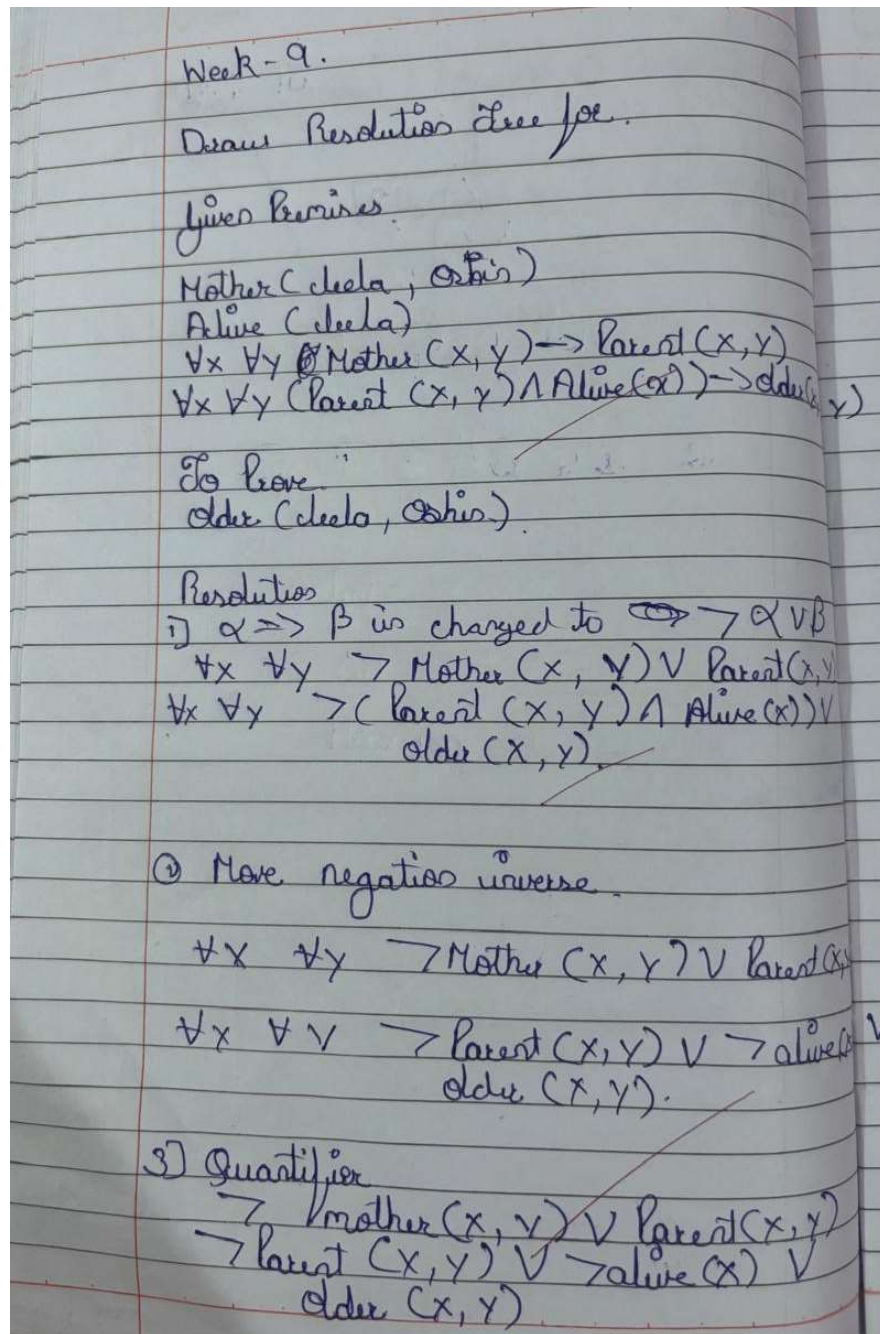 Week - 9.
Draw Resolution Tree for.
Given Premises.
Mother (Leela, Oshin)
Alive (Leela)
∀x ∀y Mother (x, y) → Parent (x, y)
∀x ∀y (Parent (x, y) ∧ Alive(x)) → older(x, y)
To Prove
older (Leela, Oshin).
Resolution
1] α => β is changed to ¬ α ∨ β
∀x ∀y ¬ Mother (x, y) ∨ Parent (x, y
∀x ∀y ¬ ( Parent (x, y) ∧ Alive (x)) ∨
older (x, y).
② Move negation inverse.
∀x ∀y ¬ Mother (x, y) ∨ Parent (x,
∀x ∀y ¬ Parent (x, y) ∨ ¬ alive(x) ∨
older (x, y).
3] Quantifier
¬ mother (x, y) ∨ Parent (x, y)
¬ Parent (x, y) ∨ ¬ alive (x) ∨
older (x, y)